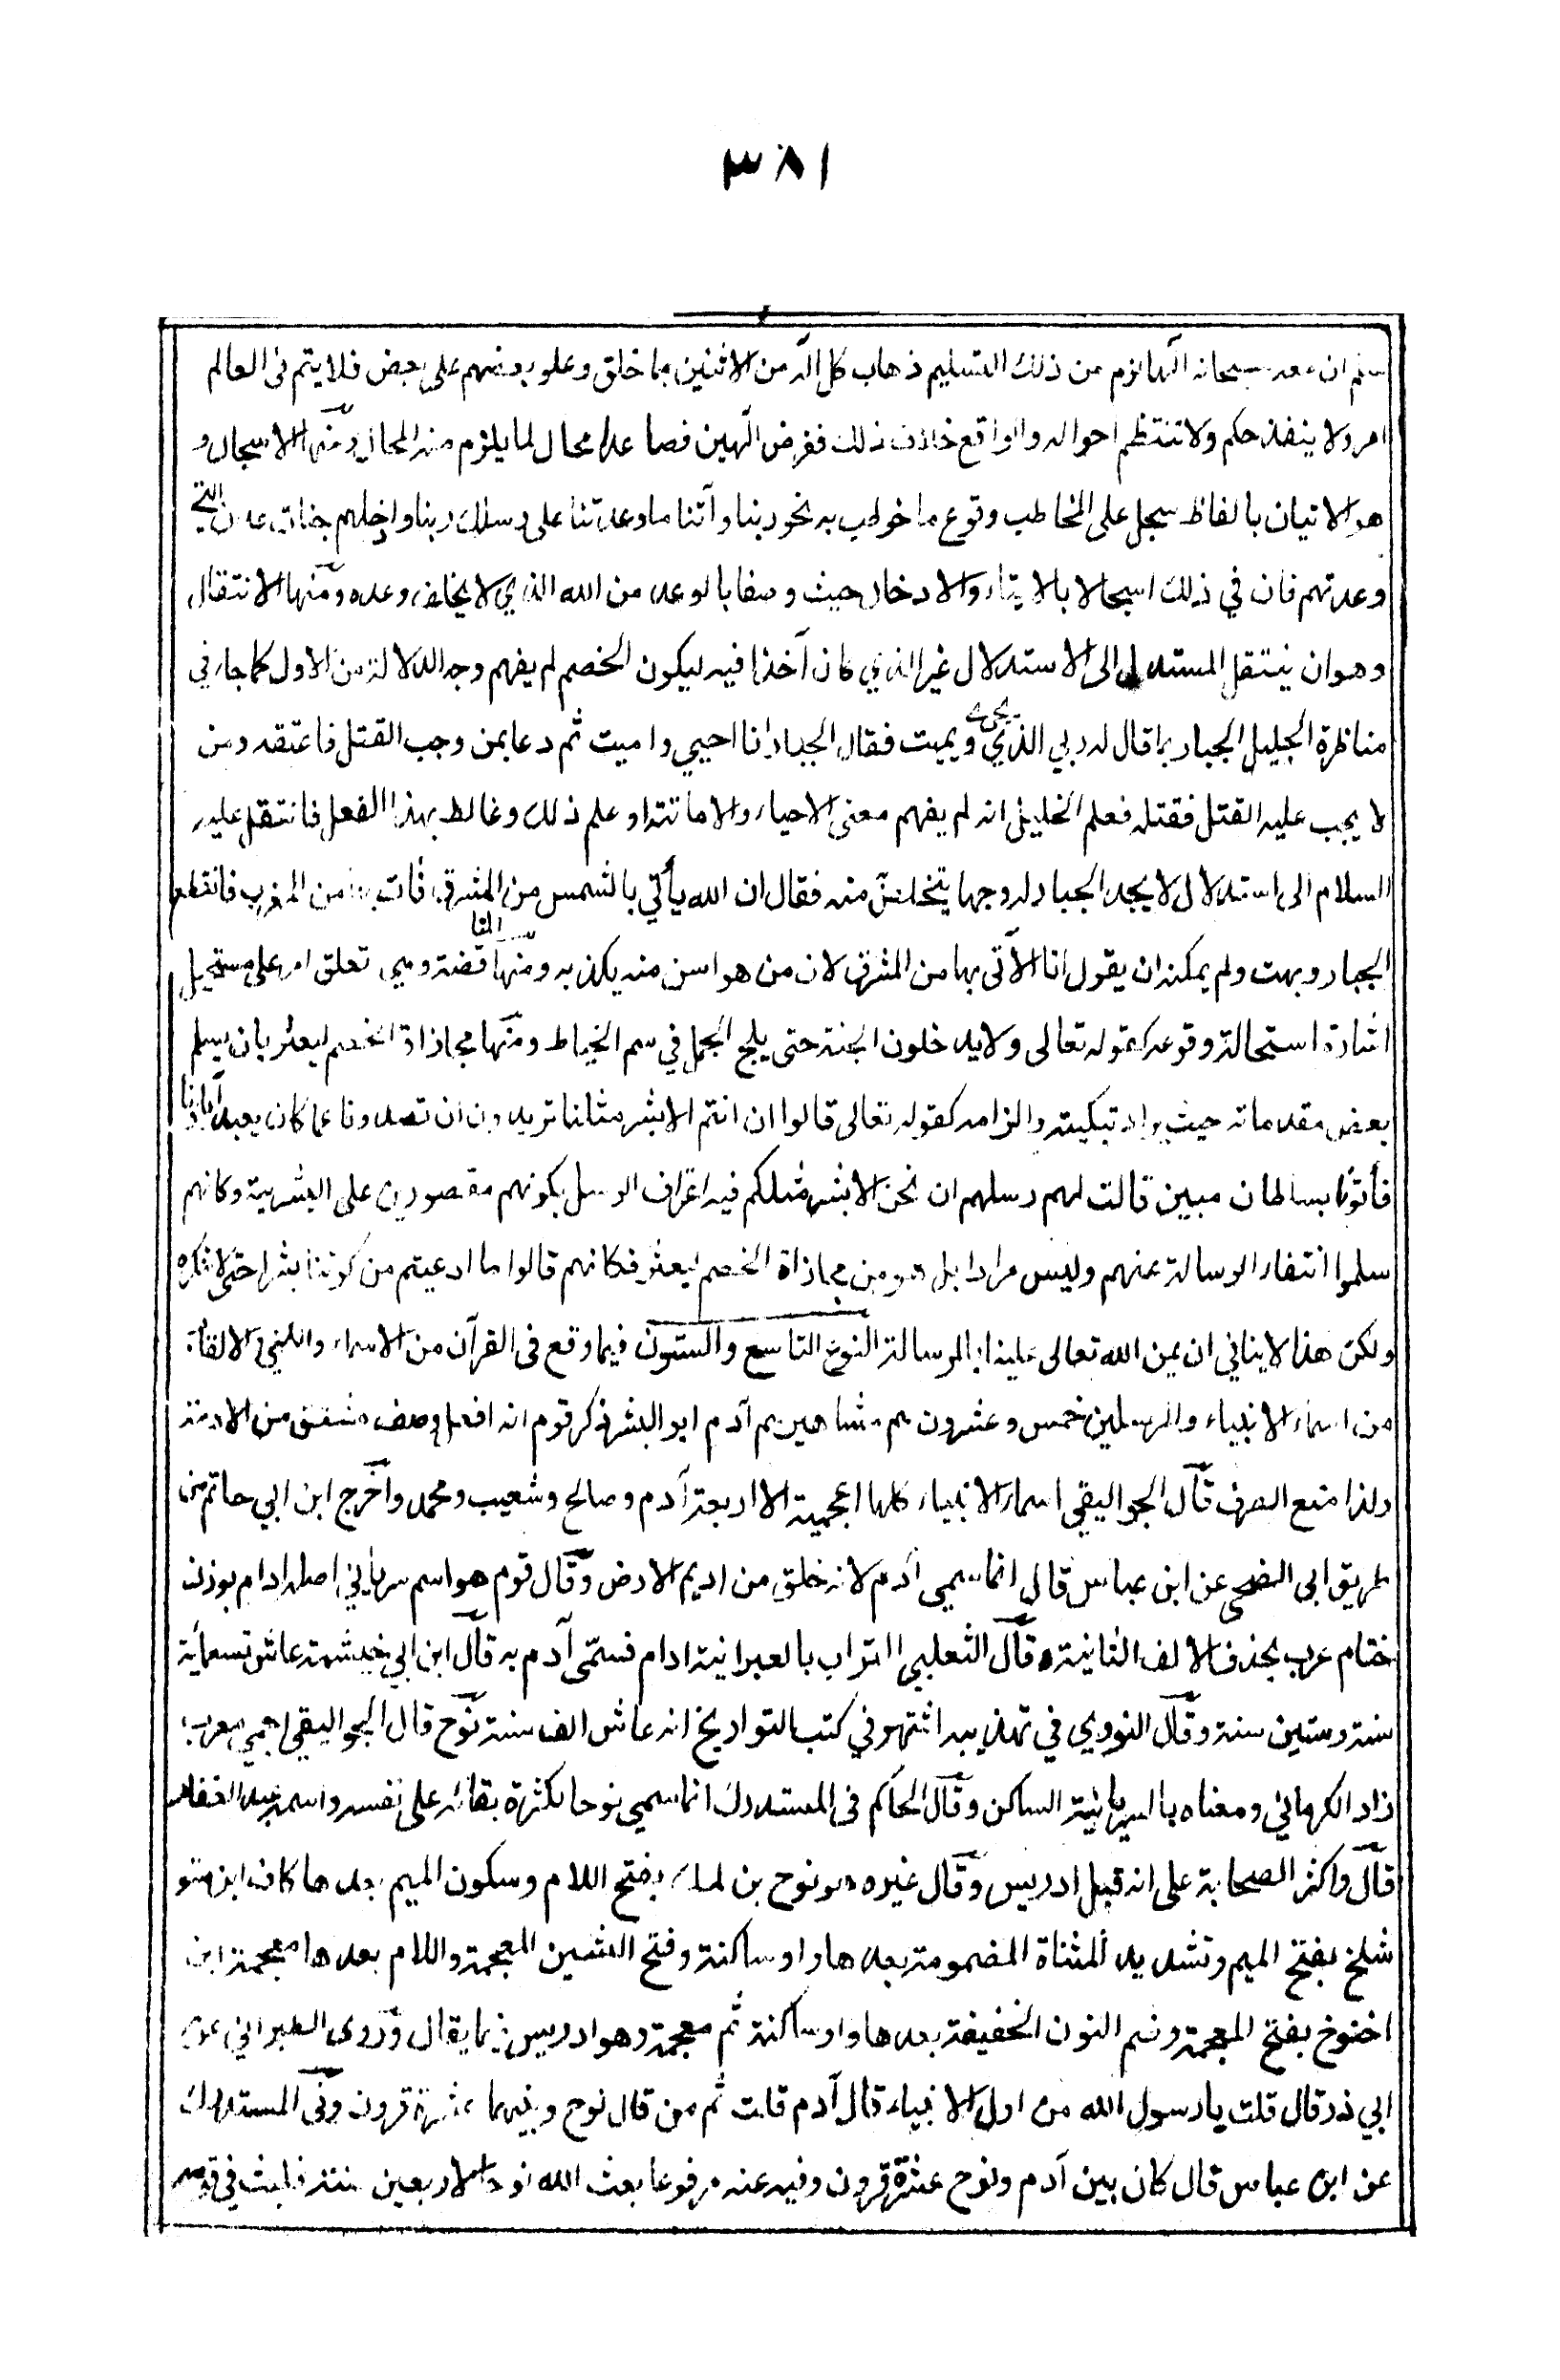 ٣٨١
سلم ان معه سبحانه الها لزم من ذلك التسليم ذهاب كل اله من الاثنين بما خلق وعلو بعضهم على بعض فلا يتم فى العالم
امر ولا ينفذ حكم ولا تنتظم احواله والواقع خلاف ذلك ففرض الهين فصاعدا محال لما يلزم منه المحال ومنها الاسجال و
هو الاتيان بالفاظ سجل على المخاطب وقوع ما خوطب به نحو ربنا وآتنا ما وعدتنا على رسلك ربنا وادخلهم جنات عدن التي
وعدتهم فان في ذلك اسجالا بالايتاء والادخال حيث وصفا بالوعد من الله الذي لا يخلف وعده ومنها الانتقال
وهو ان ينتقل المستدل الى الاستدلال غير الذي كان آخذا فيه ليكون الخصم لم يفهم وجه الدلالة من الاول كما جاء في
مناظرة الجليل الجبار بما قال له ربي الذي يحيى ويميت فقال الجبار انا احيي واميت ثم دعا بمن وجب القتل فاعتقه ومن
لا يجب عليه القتل فقتله فعلم الخليل انه لم يفهم معنى الاحياء والاماتة او علم ذلك وغالط بهذا الفعل فانتقل عليه
السلام الى استدلال لا يجد الجبار له وجها يتخلص منه فقال ان الله يأتي بالشمس من المشرق فأت بها من المغرب فانقطع
الجبار وبهت ولم يمكنه ان يقول انا الآتى بها من المشرق لان من هو اسن منه يكذبه ومنها المناقضة وهي تعلق امر على مستحيل
اشارة استحالة وقوعه كقوله تعالى ولا يدخلون الجنة حتى يلج الجمل في سم الخياط ومنها مجاراة الخصم ليعثر بان يسلم
بعض مقدماته حيث يراد تبكيته والزامه كقوله تعالى قالوا ان انتم الا بشر مثلنا تريدون ان تصدونا عما كان يعبد آباؤنا
فأتونا بسلطان مبين قالت لهم رسلهم ان نحن الا بشر مثلكم فيه اعتراف الرسل بكونهم مقصورين على البشرية وكانهم
سلموا انتفاء الرسالة عنهم وليس مرادا بل هو من مجاراة الخصم ليعثر فكانهم قالوا ما ادعيتم من كوننا بشرا حق لا ننكره
ولكن هذا لا ينافي ان يمن الله تعالى علينا بالرسالة النوع التاسع والستون فيما وقع فى القرآن من الاسماء والكنى والالقاب
من اسماء الانبياء والمرسلين خمس وعشرون هم مشاهيرهم آدم ابو البشر ذكر قوم انه افعل وصف مشتق من الادمة
ولذا منع الصرف قال الجواليقي اسماء الانبياء كلها اعجمية الا اربعة آدم وصالح وشعيب ومحمد واخرج ابن ابي حاتم من
طريق ابى الضحى عن ابن عباس قال انما سمي آدم لانه خلق من اديم الارض وقال قوم هو اسم سرياني اصله ادام بوزن
ختام عرب بحذف الالف الثانية وقال الثعلبي التراب بالعبرانية ادام فسمى آدم به قال ابن ابي خيثمة عاش تسعمائة
سنة وستين سنة وقال النووي في تهذيبه اشتهر في كتب التواريخ انه عاش الف سنة نوح قال الجواليقي اعجمي معرب
زاد الكرماني ومعناه بالسريانية الساكن وقال الحاكم فى المستدرك انما سمي نوحا لكثرة بقائه على نفسه واسمه عبد الغفار
قال واكثر الصحابة على انه قبل ادريس وقال غيره هو نوح بن لمك بفتح اللام وسكون الميم بعدها كاف ابن متو
شلخ بفتح الميم وتشديد المثناة المضمومة بعدها واو ساكنة وفتح الشين المعجمة واللام بعدها معجمة ابن
اخنوخ بفتح المعجمة وضم النون الخفيفة بعدها واو ساكنة ثم معجمة وهو ادريس فيما يقال وروى الطبراني عن
ابي ذر قال قلت يا رسول الله من اول الانبياء قال آدم قلت ثم من قال نوح وبينهما عشرة قرون وفى المستدرك
عن ابن عباس قال كان بين آدم ونوح عشرة قرون وفيه عنه مرفوعا بعث الله نوحا لاربعين سنة فلبث في قومه